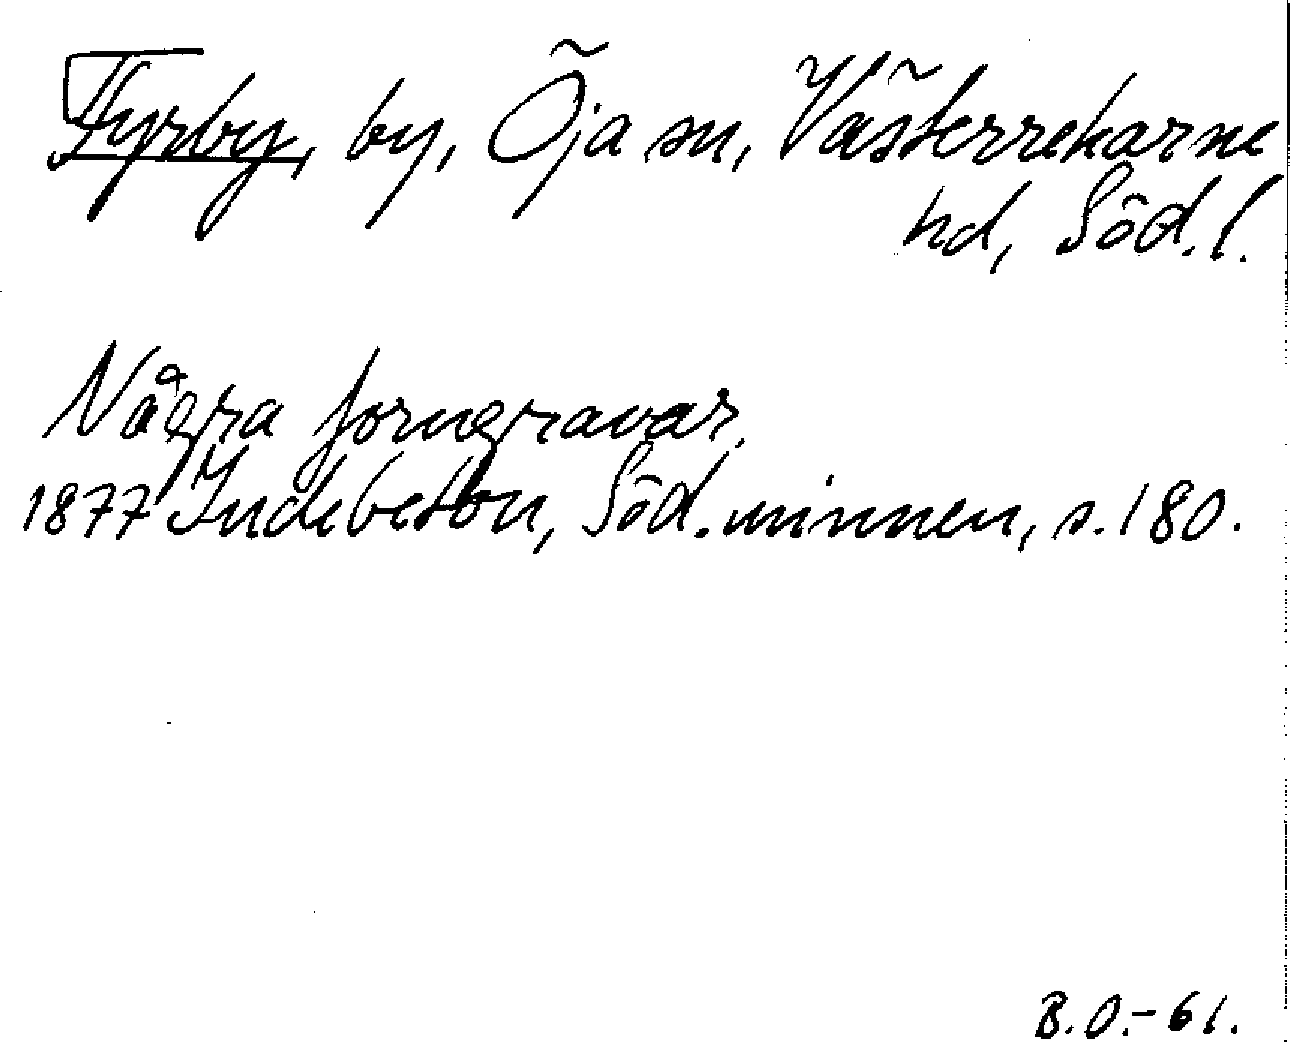 Tyrby, by, Öja sn, Västerrekarne
hd, Söd. l.
Några forngravar.
1877 Indebetou, Söd. minnen, s. 180.
B.O.-61.